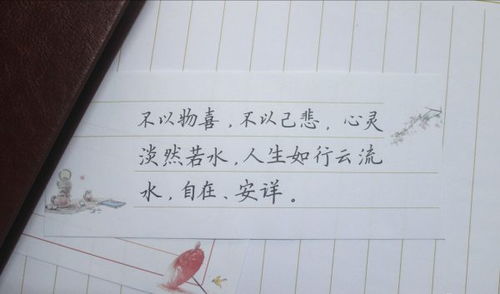 不以物喜，不以己悲，心灵
淡然若水，人生如行云流
水，自在、安详。